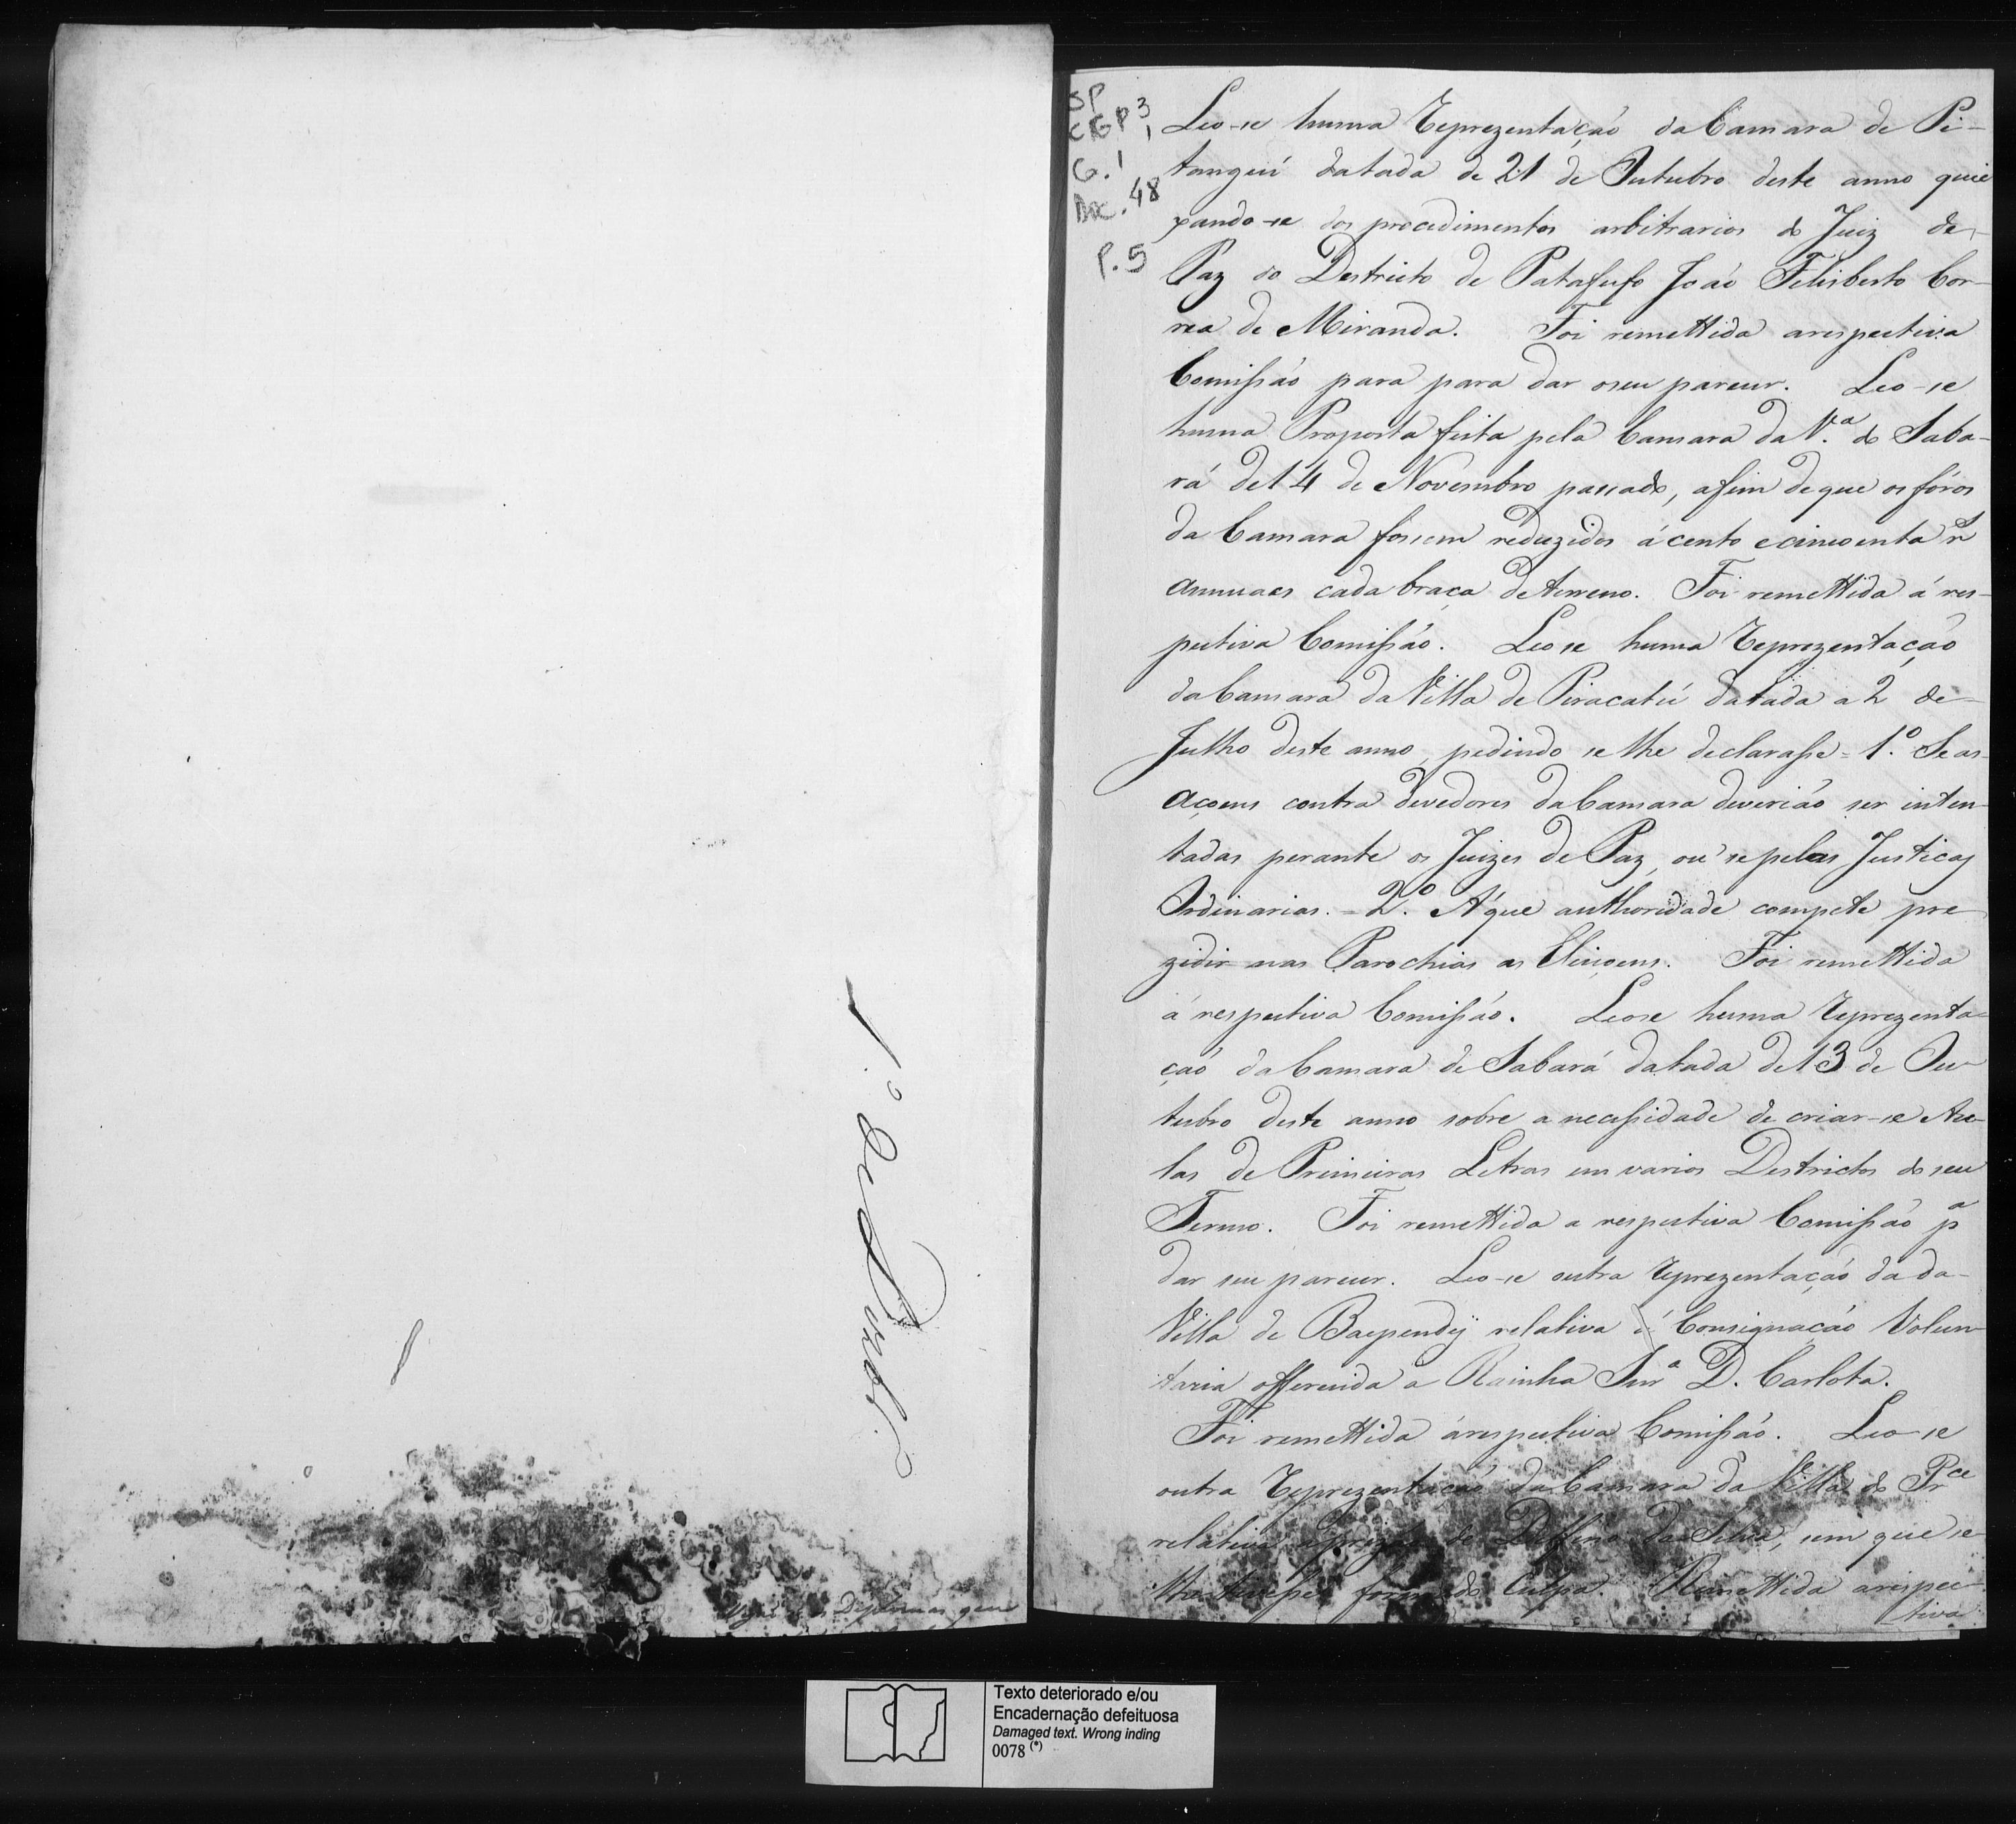 1.º de Dezbrº
SP
CGP 3,
C. 1
Doc. 48
P. 5
Leo-se huma Reprezentação da Camara de Pi-
tanguí datada de 21 de Outubro deste anno quei
xando-se dos procedimentos arbitrarios do Juiz de
Paz do Destricto de Patafufo João Felisberto Cor-
rea de Miranda. Foi remettida arespectiva
Comissão para para dar oseu parecer. Leo-se
huma Proposta feita pela Camara da V.ª do Saba-
rá de 14 de Novembro passado, afim deque os fóros
da Camara fossem reduzidos á cento ecincoenta rs
annuaes cada braça deterreno. Foi remettida á res-
pectiva Comissão. Leose huma Reprezentação
da Camara da Villa de Piracatú datada a 2 de
Julho deste anno, pedindo se lhe declarasse = 1.º Se as
açoens contra devedores da Camara deverião ser inten-
tadas perante os Juizes de Paz, ou se pelas Justiças
Ordinarias. = 2.º A'que authoridade compete pre
zidir nas Parochias as Eleiçoens. Foi remettida
á respectiva Comissão. Leose huma Reprezenta-
ção da Camara de Sabará datada de 13 de Ou
tubro deste anno sobre a necessidade de criar-se Au-
las de Primeiras Letras em varios Destrictos do seu
Termo. Foi remettida a respectiva Comissão pª
dar seu parecer. Leo-se outra Reprezentação da da
Villa de Baependÿ relativa á Consignação Volun
taria offerecida a Rainha Snrª D. Carlota.
Foi remettida árespectiva Comissão. Leo-se
outra Reprezentação da Camara da Villa do Prce
relativa de Delfino da Silva, sem que se
formado Culpa. Remettida arespec-
tiva
Diplomas que
Texto deteriorado e/ou
Encadernação defeituosa
Damaged text. Wrong inding
0078 (*)